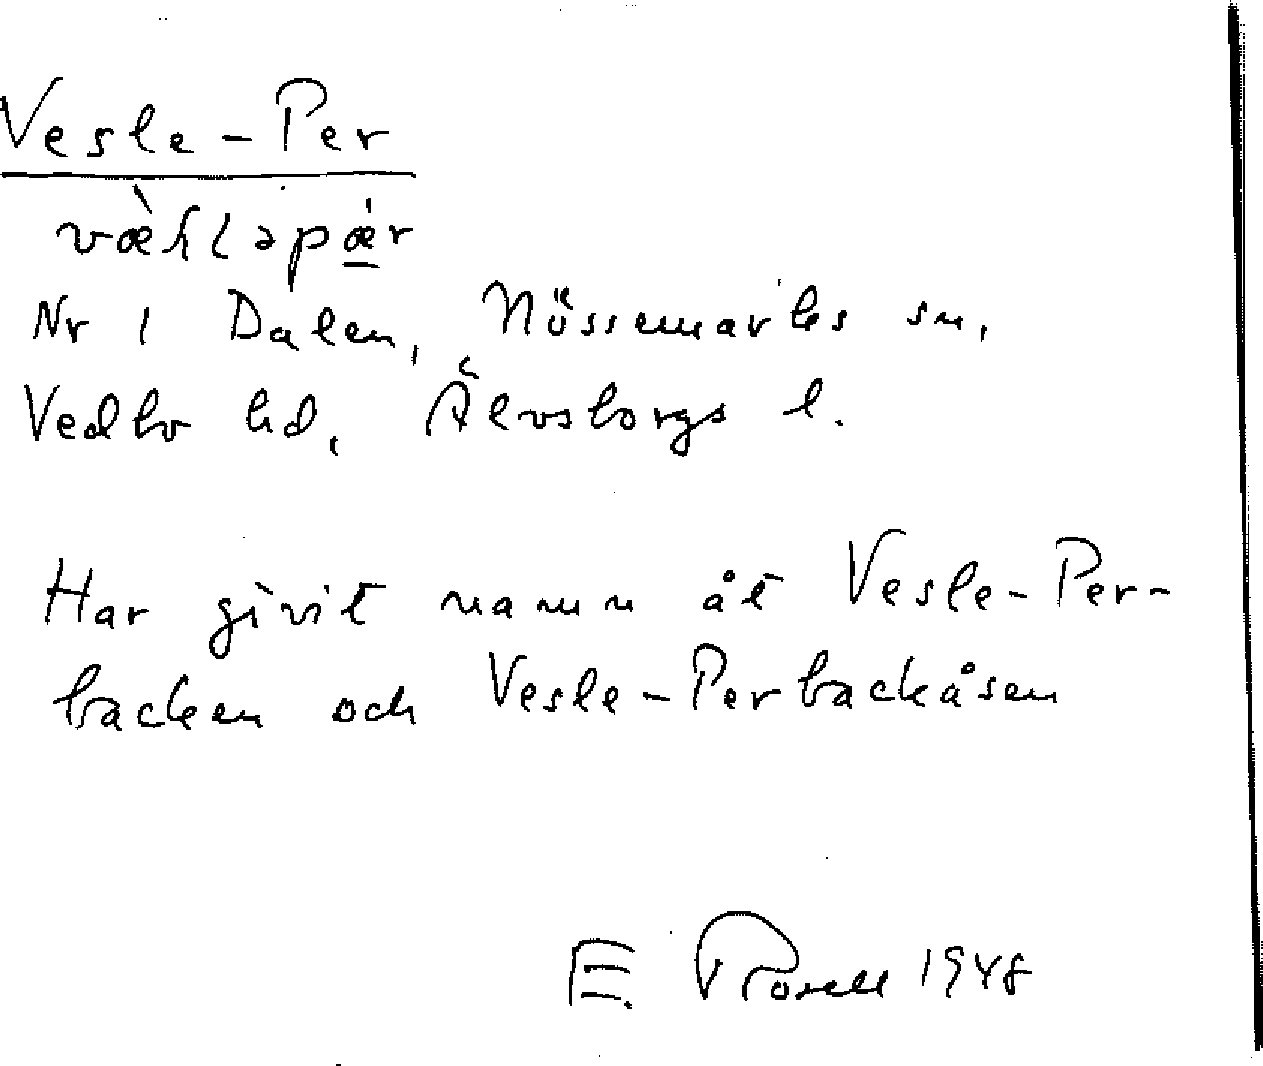 Vesle-Per
Nr 1 Dalen, Nössemarks sn,
Vedbo hd, Älvsborgs l.
Har givit namn åt Vesle-Per-
backen och Vesle-Perbackåsen
E. Rosell 1948